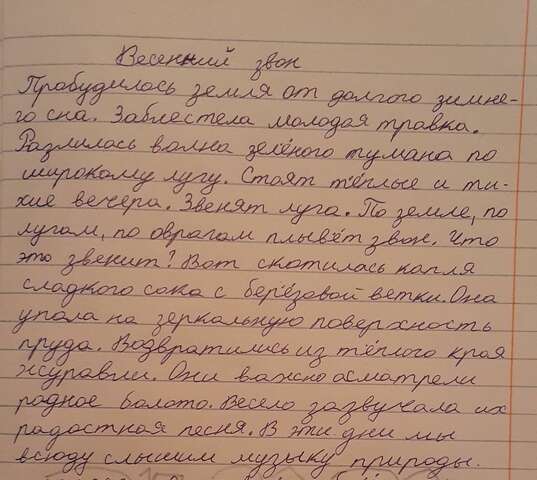 Весенний звон
Пробудилось земля от долгого зимне-
го сна. Заблестела молодая травка.
Разлилась волна зелёного тумана по
широкому лугу. Стоят тёплые и ти-
хие вечера. Звенят луга. По земле, по
лугам, по оврагам плывёт звон. Что
это звенит? Вот скотилась капля
сладкого сока с берёзовой ветки. Она
упала на зеркальную поверхность
пруда. Возвратились из тёплого края
журавли. Они важно осматрели
родное болото. Весело зазвучала их
радостная песня. В эти дни мы
всюду слышим музыку природы.